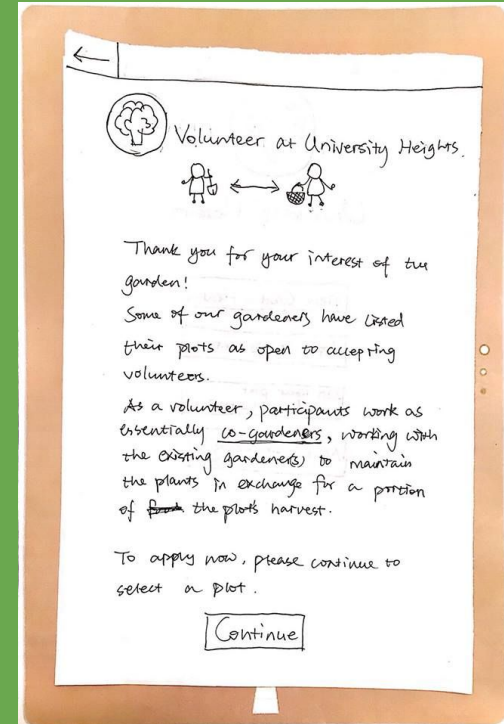 Volunteer at University Heights.
Thank you for your interest of the
garden!
Some of our gardeners have listed
their plots as open to accepting
volunteers.
As a volunteer, participants work as
essentially co-gardeners, working with
the existing gardener(s) to maintain
the plants in exchange for a portion
of the plot's harvest.
To apply now, please continue to
select a plot.
Continue